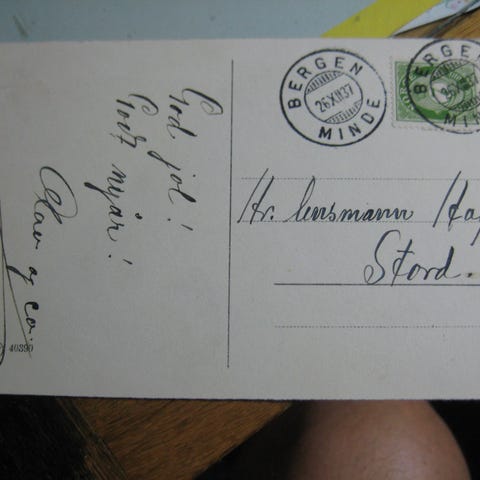 God jol!
Godt nyår!
Olav og co.
40390
BERGEN
26XII37
MINDE
BERGEN
MIN
Hr. lensmann Ha
Stord.